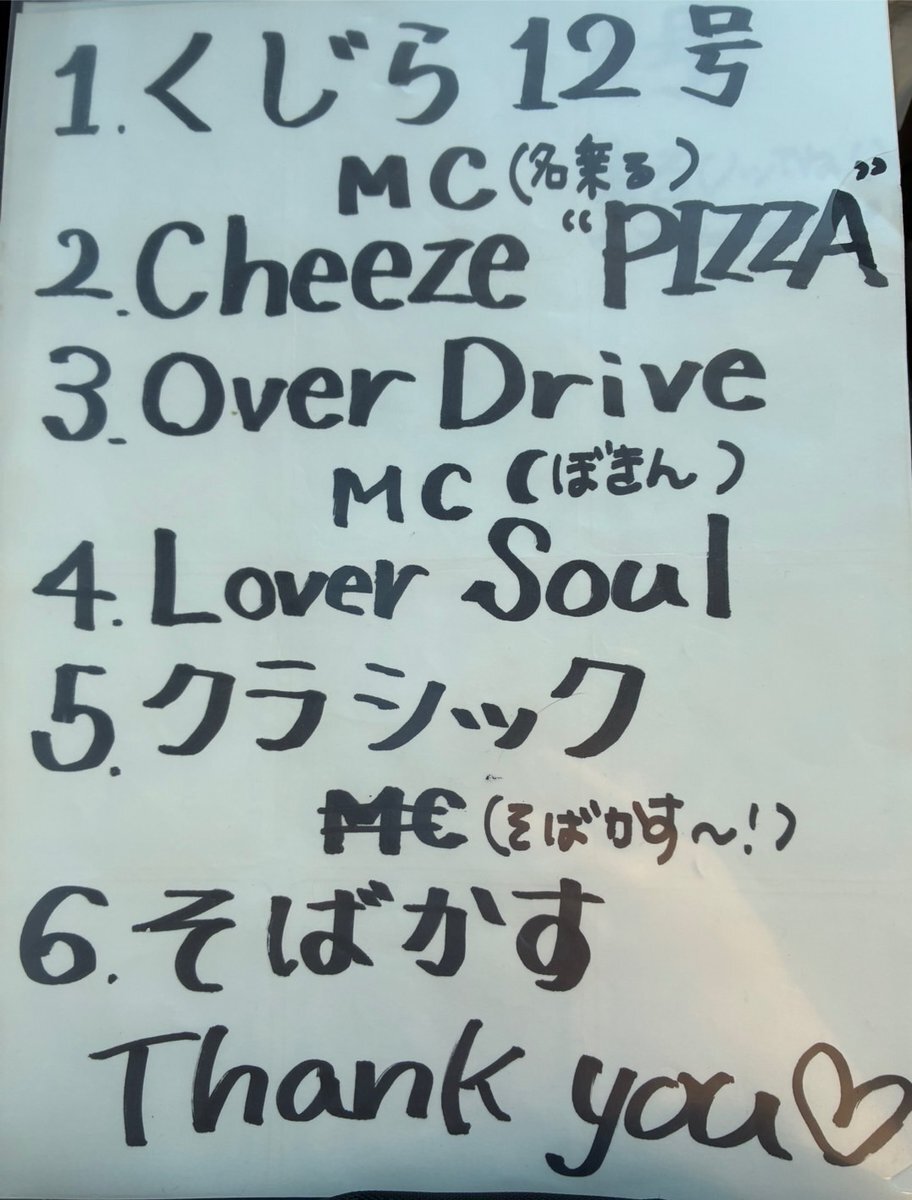 1. くじら 12 号
MC (名乗る)
2. Cheeze “PIZZA”
3. Over Drive
MC (ぼきん)
4. Lover Soul
5. クラシック
MC (そばかす〜!)
6. そばかす
Thank you♡